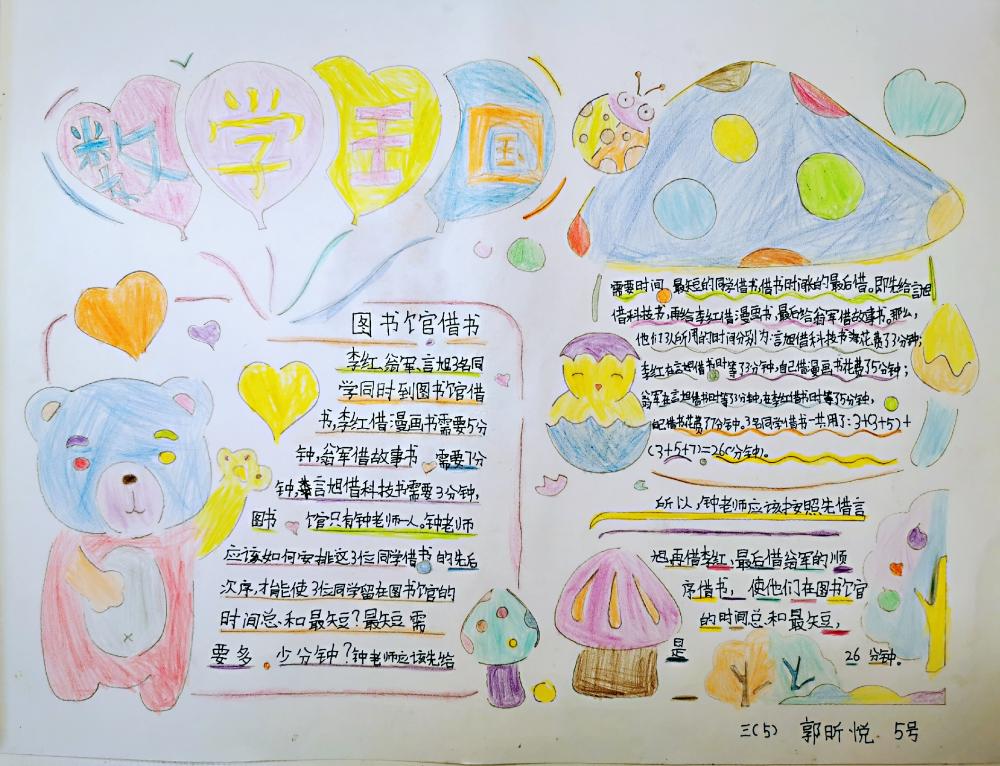 数学王国
图书馆借书
李红、翁军、言旭3名同
学同时到图书馆借
书,李红借漫画书需要5分
钟,翁军借故事书需要7分
钟,言旭借科技书需要3分钟,
图书馆只有钟老师一人,钟老师
应该如何安排这3位同学借书的先后
次序,才能使3位同学留在图书馆的
时间总和最短?最短需
要多少分钟?钟老师应该先给
需要时间最短的同学借书,借书时间长的最后借。即先给言旭
借科技书,再给李红借漫画书,最后给翁军借故事书。那么,
他们3人所用的时间分别为:言旭借科技书花费了3分钟;
李红在言旭借书时等了3分钟,自己借漫画书花费了5分钟;
翁军在言旭借书时等3分钟,在李红借书时等了5分钟,
自己借书花费了7分钟。3名同学借书一共用了:3+(3+5)+
(3+5+7)=26(分钟)。
所以,钟老师应该按照先借言
旭再借李红,最后借翁军的顺
序借书,使他们在图书馆
的时间总和最短,
是26分钟。
三(5) 郭昕悦 5号